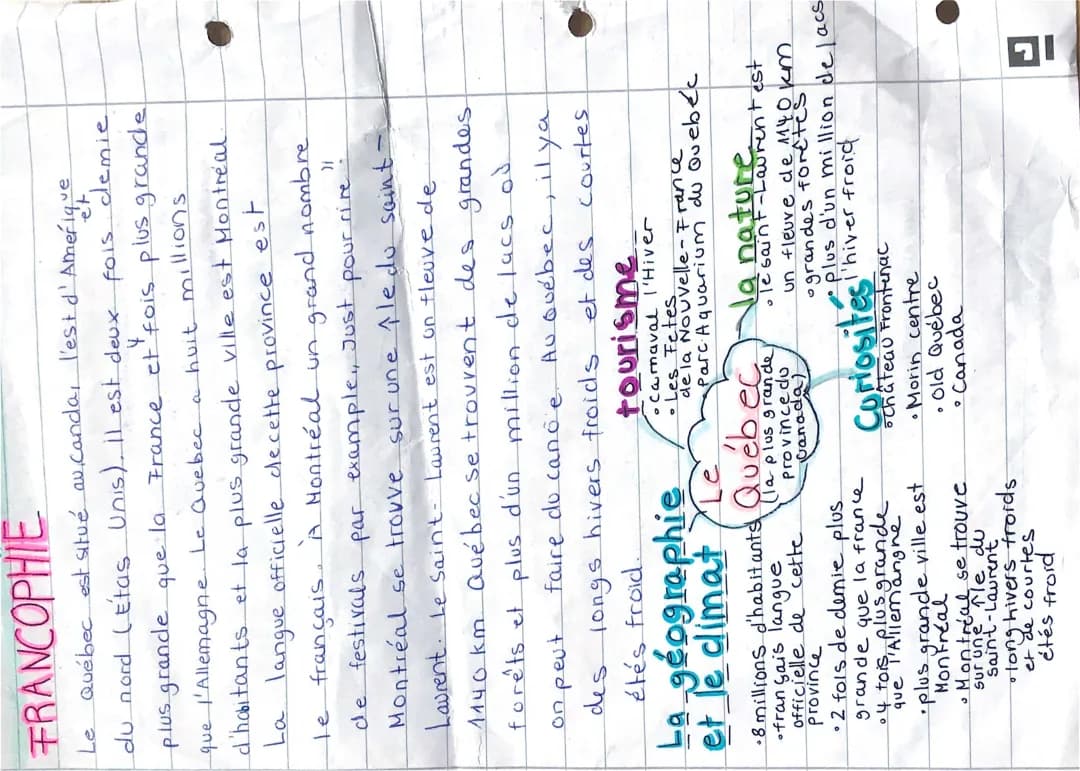 FRANCOPHIE
Le Québec est situé au canda, l'est d'Amérique
du nord (Étas Unis). Il est deux fois et demie
plus grande que la France et 4 fois plus grande
que l'Allemagne. Le Québec a huit millions
d'habitants et la plus grande ville est Montréal.
La langue officielle de cette province est
le français. À Montréal un grand nombre
de festivals par example „Just pour rire".
Montréal se trouve sur une île du saint-
Laurent. Le Saint-Laurent est un fleuve de
1140 km Québec se trouvent des grandes
forêts et plus d'un million de lacs où
on peut faire du canöe. Au Québec, il y a
des longs hivers froids et des courtes
étés froid.
La géographie
et le climat
•8 millions d'habitants
•français langue
officielle de cette
province
•2 fois de demie plus
grande que la france
•4 fois plus grande
que l'Allemangne
•plus grande ville est
Montréal
•Montréal se trouve
sur une île du
saint-Laurent
•long hivers froids
et de courtes
étés froid
Le
Québec
(la plus grande
province du
Canada)
tourisme
•Carnaval l'Hiver
•Les Fetes
de la Nouvelle-France
Parc Aquarium du Quebéc
la nature
•le saint-Laurent est
un fleuve de 1140 km
•grandes forêtes
•plus d'un million de lacs
l'hiver froid
Curiosités
•Château Frontenac
•Morin centre
•Old Québec
•Canada